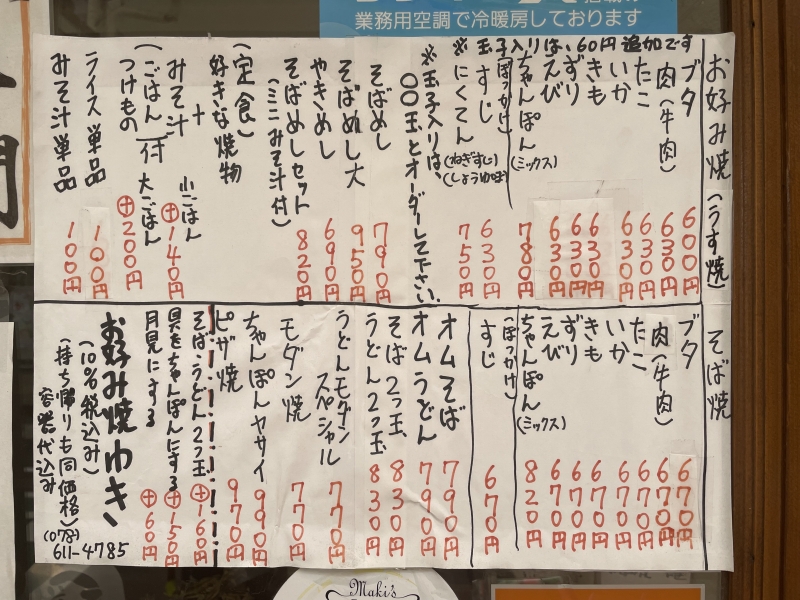 業務用空調で冷暖房しております
※玉子入りは、60円追加です
お好み焼(うす焼)
ブタ 600円
肉(牛肉) 630円
たこ 630円
いか 630円
きも 630円
ずり 630円
えび 630円
ちゃんぽん(ミックス) 780円
(ぼっかけ)
すじ 630円
にくてん(ねぎすじ)(しょうゆ味) 750円
※玉子入りは、
〇〇玉とオーダーして下さい.
そばめし 790円
そばめし大 950円
やきめし 690円
そばめしセット 820円
(ミニみそ汁付)
(定食)
好きな焼物
+
みそ汁 小ごはん ⊕140円
(ごはん 大ごはん ⊕200円
つけもの)付
ライス単品 100円
みそ汁単品 100円
そば焼
ブタ 670円
肉(牛肉) 670円
たこ 670円
いか 670円
きも 670円
ずり 670円
えび 670円
ちゃんぽん(ミックス) 820円
(ぼっかけ)
すじ 670円
オムそば 790円
オムうどん 790円
そば2つ玉 830円
うどん2つ玉 830円
うどんモダン
スペシャル 770円
モダン焼 770円
ちゃんぽんヤサイ 990円
ピザ焼 970円
そば、うどん2つ玉 ⊕160円
具をちゃんぽんにする ⊕150円
月見にする ⊕60円
お好み焼ゆき
(10%税込み)
(持ち帰りも同価格)
容器代込み
(078)
611-4785
Maki's